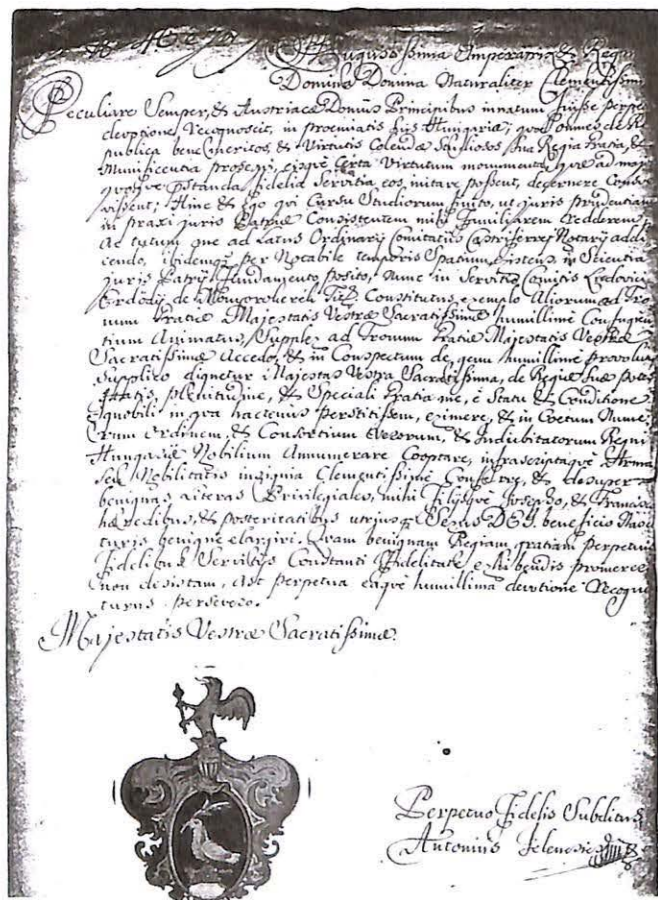 Augustissima Imperatrix & Regi
Domina Domina Naturaliter Clementissim
Peculiare Semper, & Austriacæ Domus Principibus innatum fuisse perpe
devotione recognoscit, in proemiatis suis Hungaria; quod omnes de Re
publica bene Emeritos, & Virtutis Colendæ Studiosos Sua Regia Gratia, &
Munificentia prosequi, eisque Certa Virtutum monumenta, quæ ad maj
quoque præstanda fidelia Servitia, eos invitare possent, decernere Consue
vissent; Hinc & Ego qui Cursu Studiorum finito, ut juris prudentiam
in praxi juris Patriæ Consistentem mihi Familiarem redderem,
ad Latus Ordinarij Comitatûs Castriferrei Notarij addi
cendo, ibidemque per Notabile temporis Spatium existens, in Scientia
juris Patrij Fundamento posito, nunc in Servitio Comitis Ludovici
Erdödÿ de Monyorokerek Constitutus, exemplo Aliorum ad Tro
num Gratiæ Majestatis Vestræ Sacratissimæ humillimè Confugien
tium Animatus, Supplex ad Tronum Gratiæ Majestatis Vestræ
Sacratissimæ Accedo, & in Conspectum de genu humillimè provolu
Supplico dignetur Majestas Vestra Sacratissima, de Regiæ Suæ potes
tatis, plenitudine, & Speciali Gratia me, è Statu & Conditione
ignobili in qua hactenus perstitissem, eximere, & in Coetum Nume
rum Ordinem, & Consortium Verorum, & Indubitatorum Regni
Hungariæ Nobilium Annumerare Cooptare, infrascriptaque Arma
seu Nobilitatis insignia Clementissimè Conferre, & desuper
benignas Literas Privilegiales, mihi Filijsque Josepho, & Francisco
hæredibus, & posteritatibus utriusque Sexus DEI beneficio Nasci
turis benigne elargiri. Quam benignam Regiam gratiam perpetuis
Fidelibus Servitijs Constanti Fidelitate exhibendis promereri
non desistam, Ast perpetua eaque humillima devotione Recogni
turus persevero.
Majestatis Vestræ Sacratissimæ.
Perpetuo Fidelis Subditus
Antonius Jelencsics